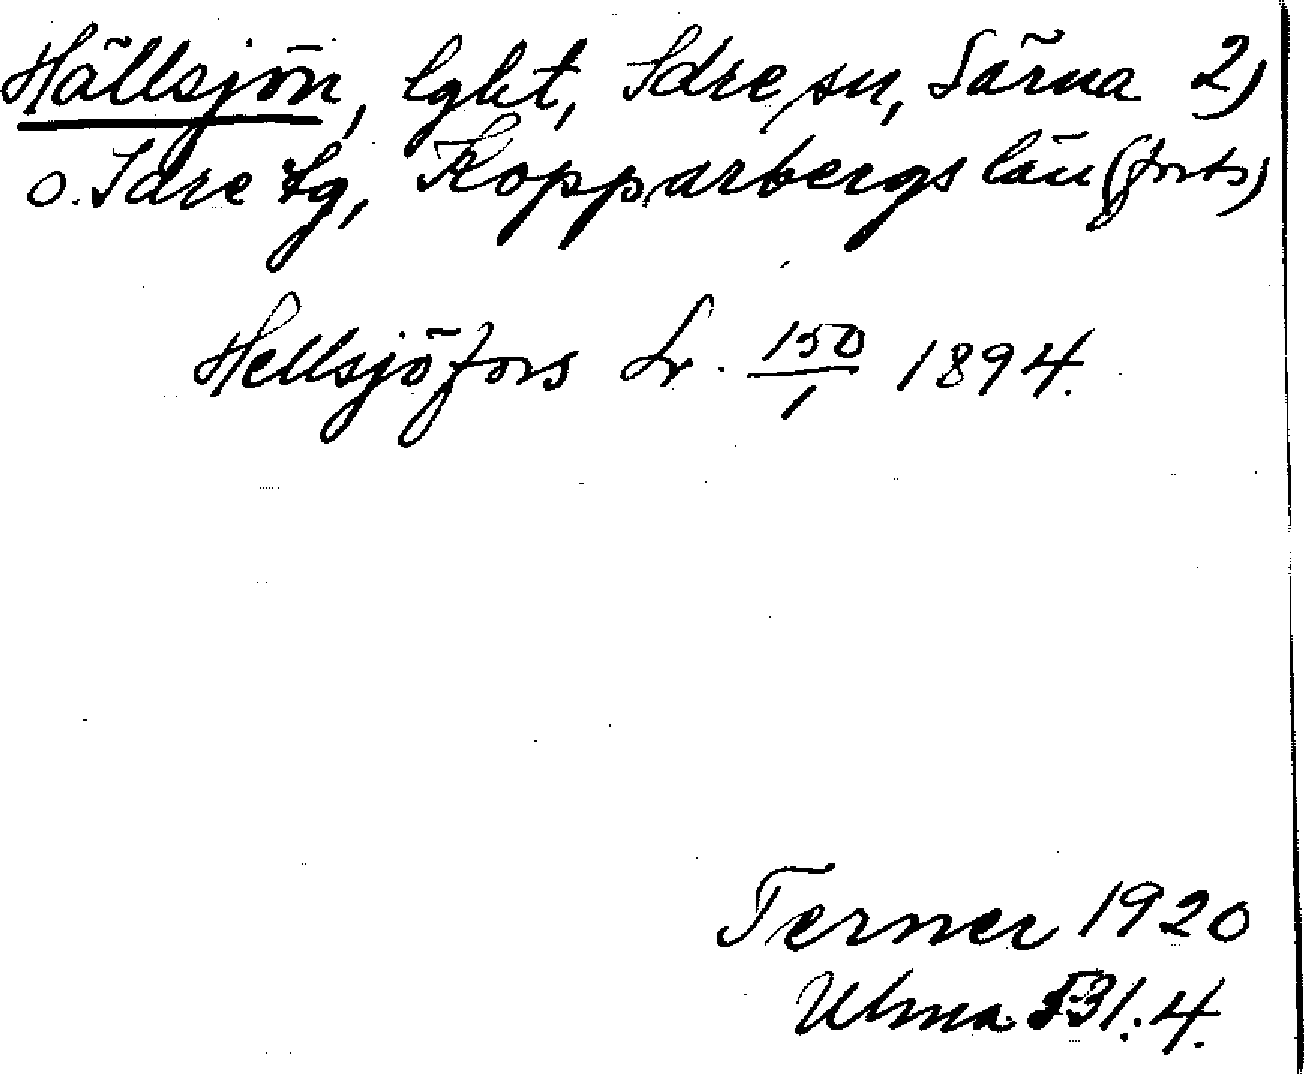 Hällsjön, lght, Idre sn, Särna 2)
o. Idre tg, Kopparbergs län (forts)
Hellsjöfors Lr. 150/1 1894.
Terner 1920
Ulma 531:4.